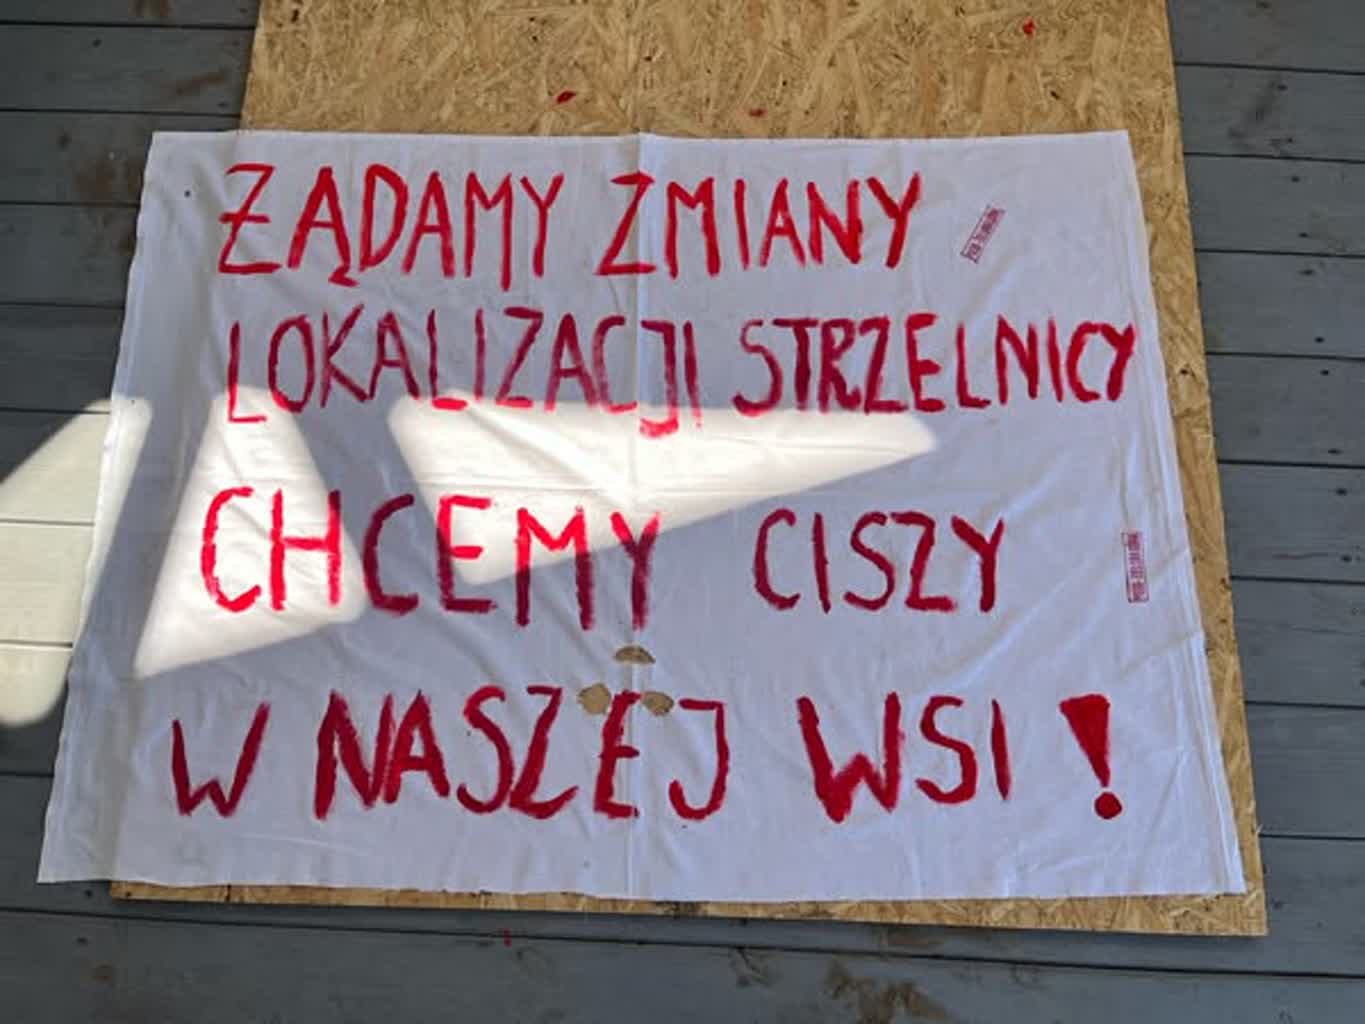 ŻĄDAMY ZMIANY
LOKALIZACJI STRZELNICY
CHCEMY CISZY
W NASZEJ WSI!